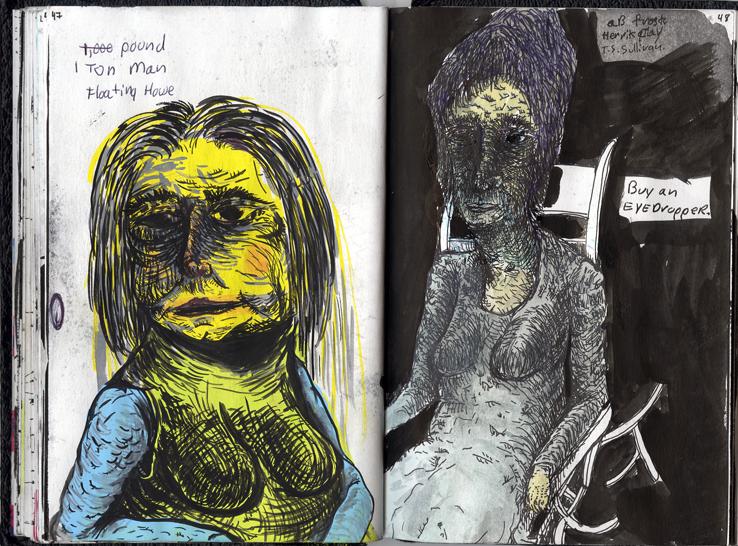 47
1,000 pound
1 Ton Man
Floating Howe
48
aB frost
T.S. Sullivan.
Buy an
EYEDropper.